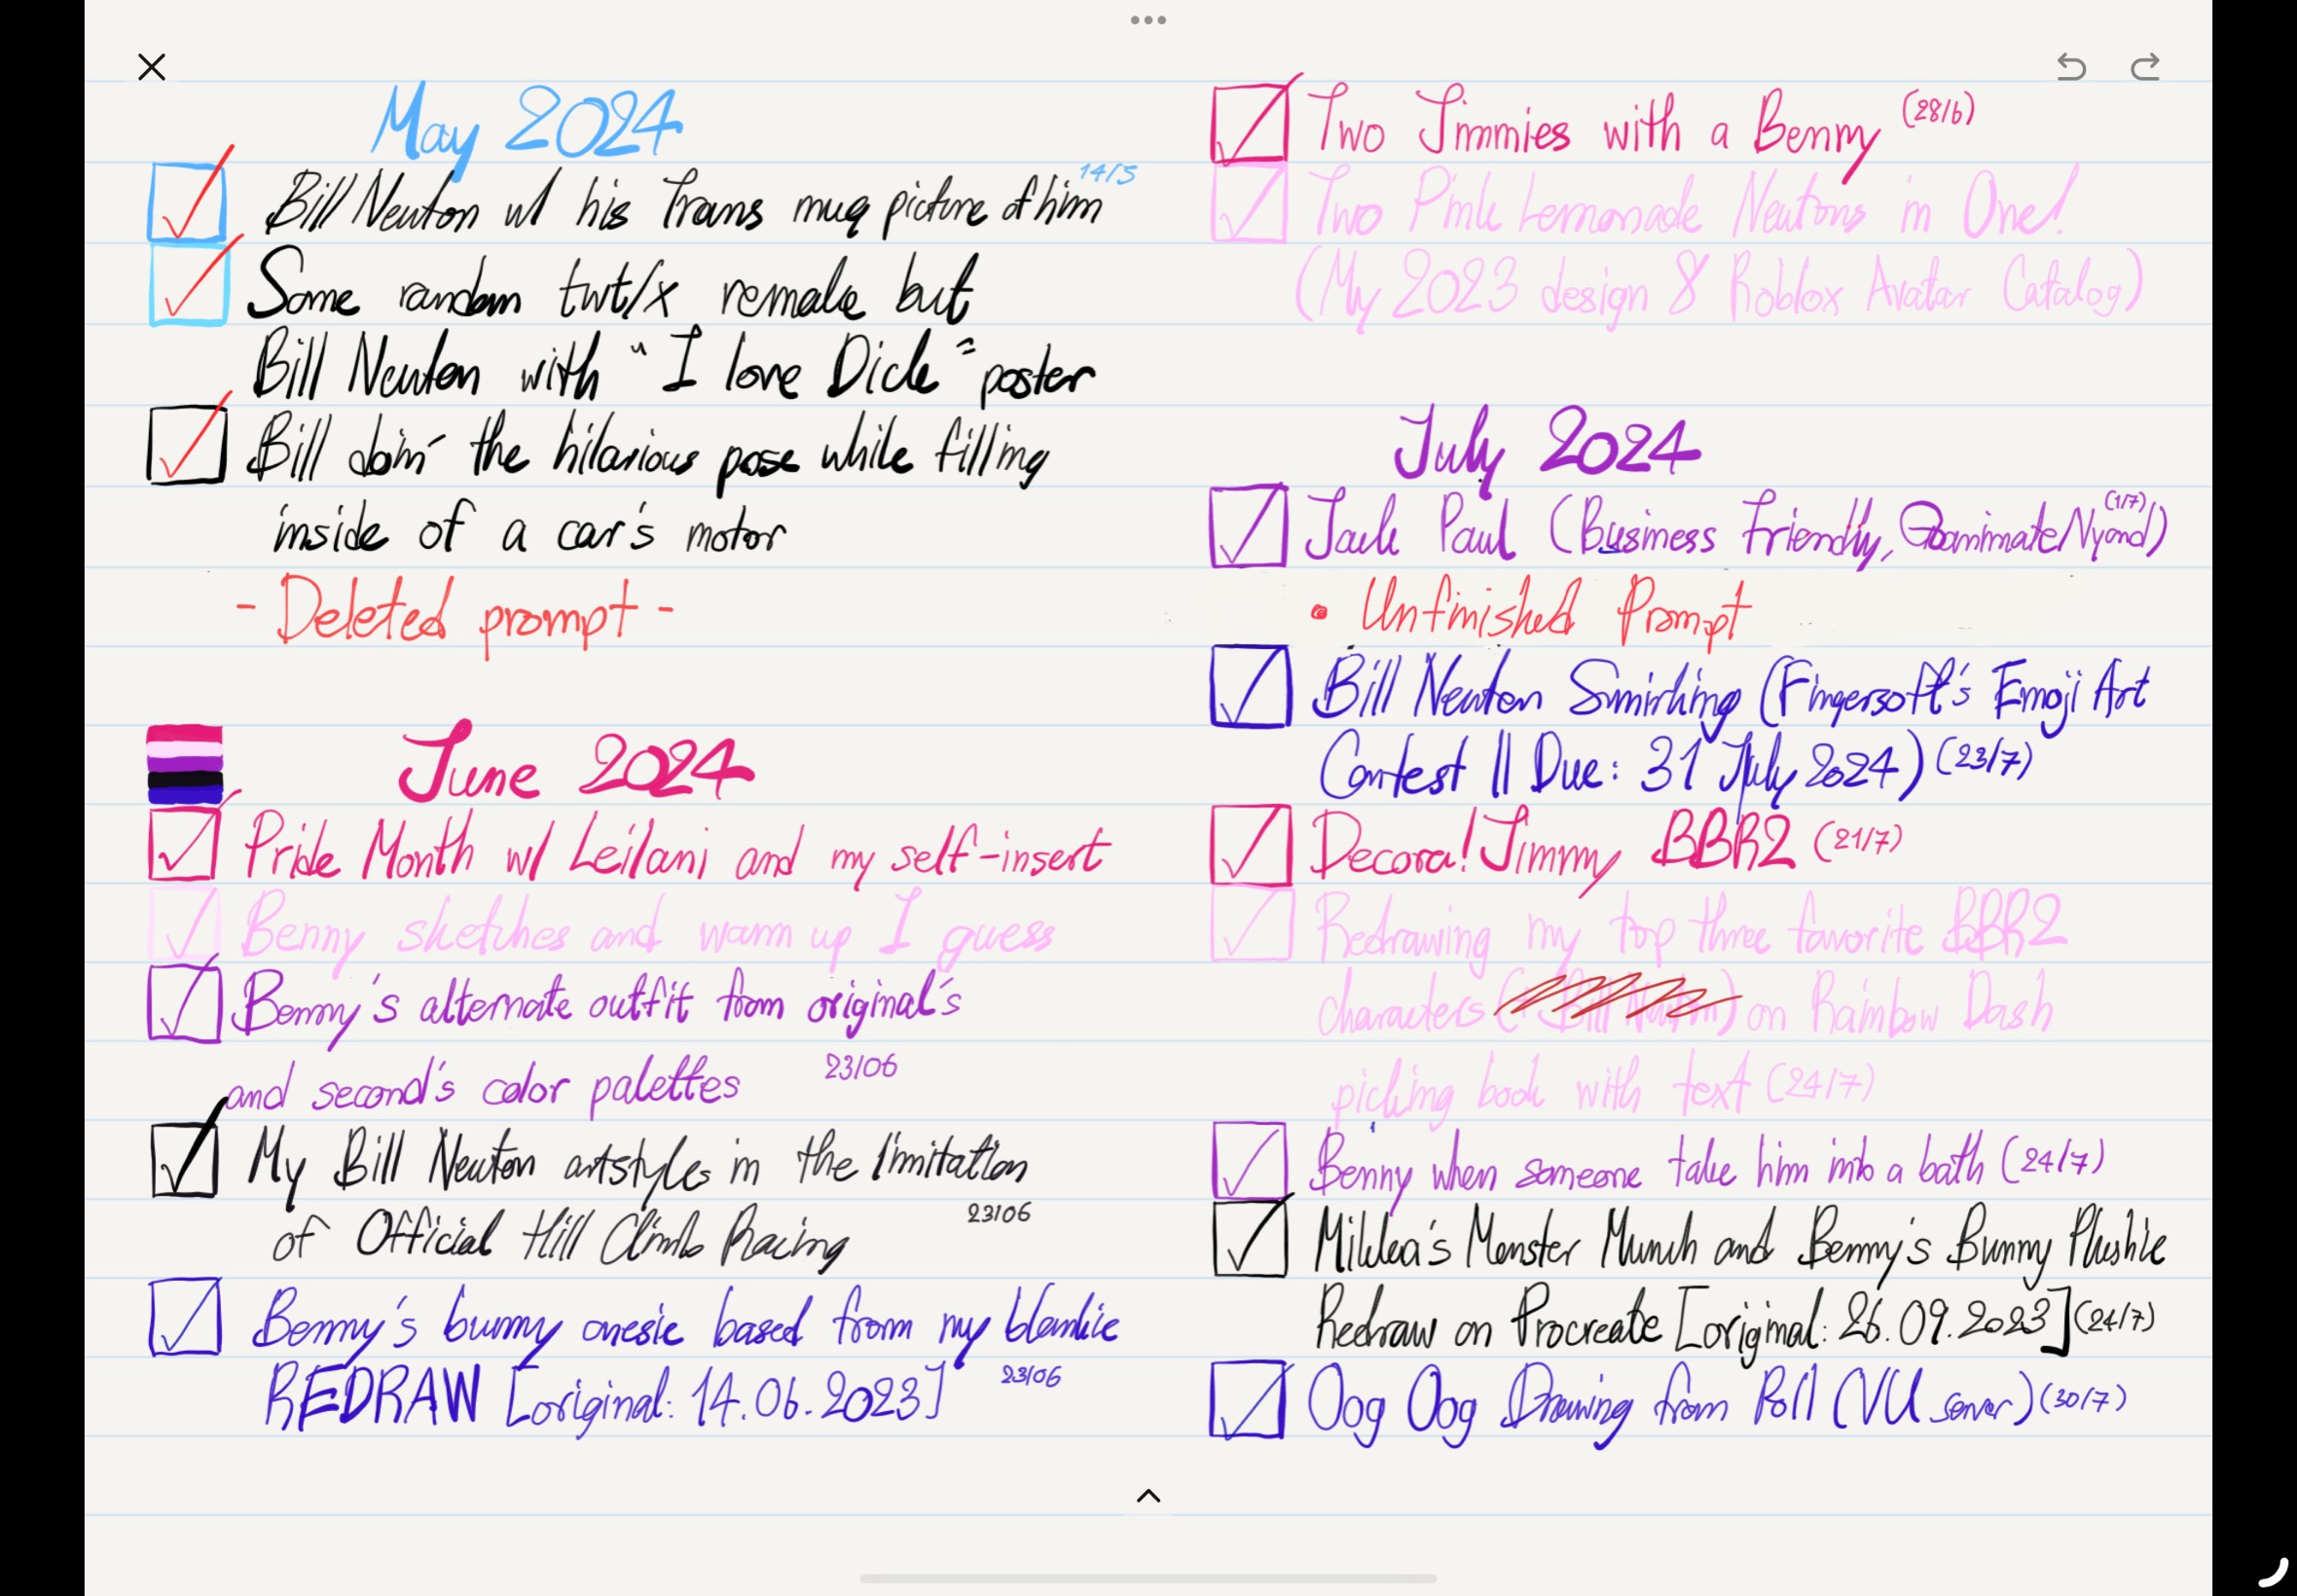 May 2024
Bill Newton w/ his Trans mug picture of him 14/5
Some random twt/x remake but
Bill Newton with "I love Dick" poster
Bill doin' the hilarious pose while filling
inside of a car's motor
- Deleted prompt -
June 2024
Pride Month w/ Leilani and my self-insert
Benny sketches and warm up I guess
Benny's alternate outfit from original's
and second's color palettes 23/06
My Bill Newton artstyles in the limitation
of Official Hill Climb Racing 23/06
Benny's bunny onesie based from my blankie
REDRAW [original: 14.06.2023] 23/06
Two Jimmies with a Benny (28/6)
Two Pink Lemonade Newtons in One!
(My 2023 design & Roblox Avatar Catalog)
July 2024
Jack Paul (Business Friendly, (1/7)
• Unfinished Prompt
Bill Newton Smirking (Fingersoft's Emoji Art
Contest || Due: 31 July 2024) (23/7)
Decora! Jimmy BBR2 (21/7)
Redrawing my top three favorite BBR2
characters on Rainbow Dash
picking book with text (24/7)
Benny when someone take him into a bath (24/7)
Milklea's Monster Munch and Benny's Bunny Plushie
Redraw on Procreate [original: 26.09.2023] (24/7)
Oog Oog Drawing from Poll (VU server) (30/7)